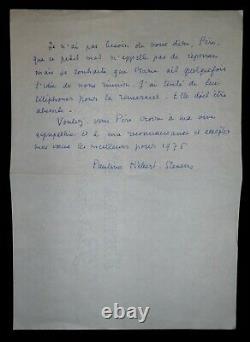 Je n'ai pas besoin de vous dire, Père,
que ce petit mot n'appelle pas de réponse
mais je souhaite que Maria ait quelquefois
l'idée de nous réunir. J'ai tenté de lui
téléphoner pour la remercier. Elle doit être
absente.
Voulez-vous Père croire à ma vive
sympathie et à ma reconnaissance et accepter
mes vœux les meilleurs pour 1975
Pauline Stevens